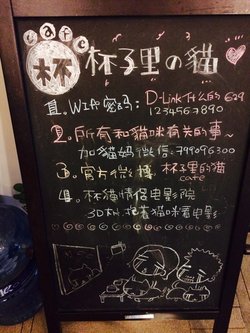 cafe
杯 杯子里の貓
1. WIFI密码: D-Link什么的629
1234567890
2. 所有和貓咪有关的事~
加貓媽微信: 799096300
3. 官方微博: 杯子里的猫
cafe
4. 杯猫情侣电影院
3D杯, 抱着猫咪看电影